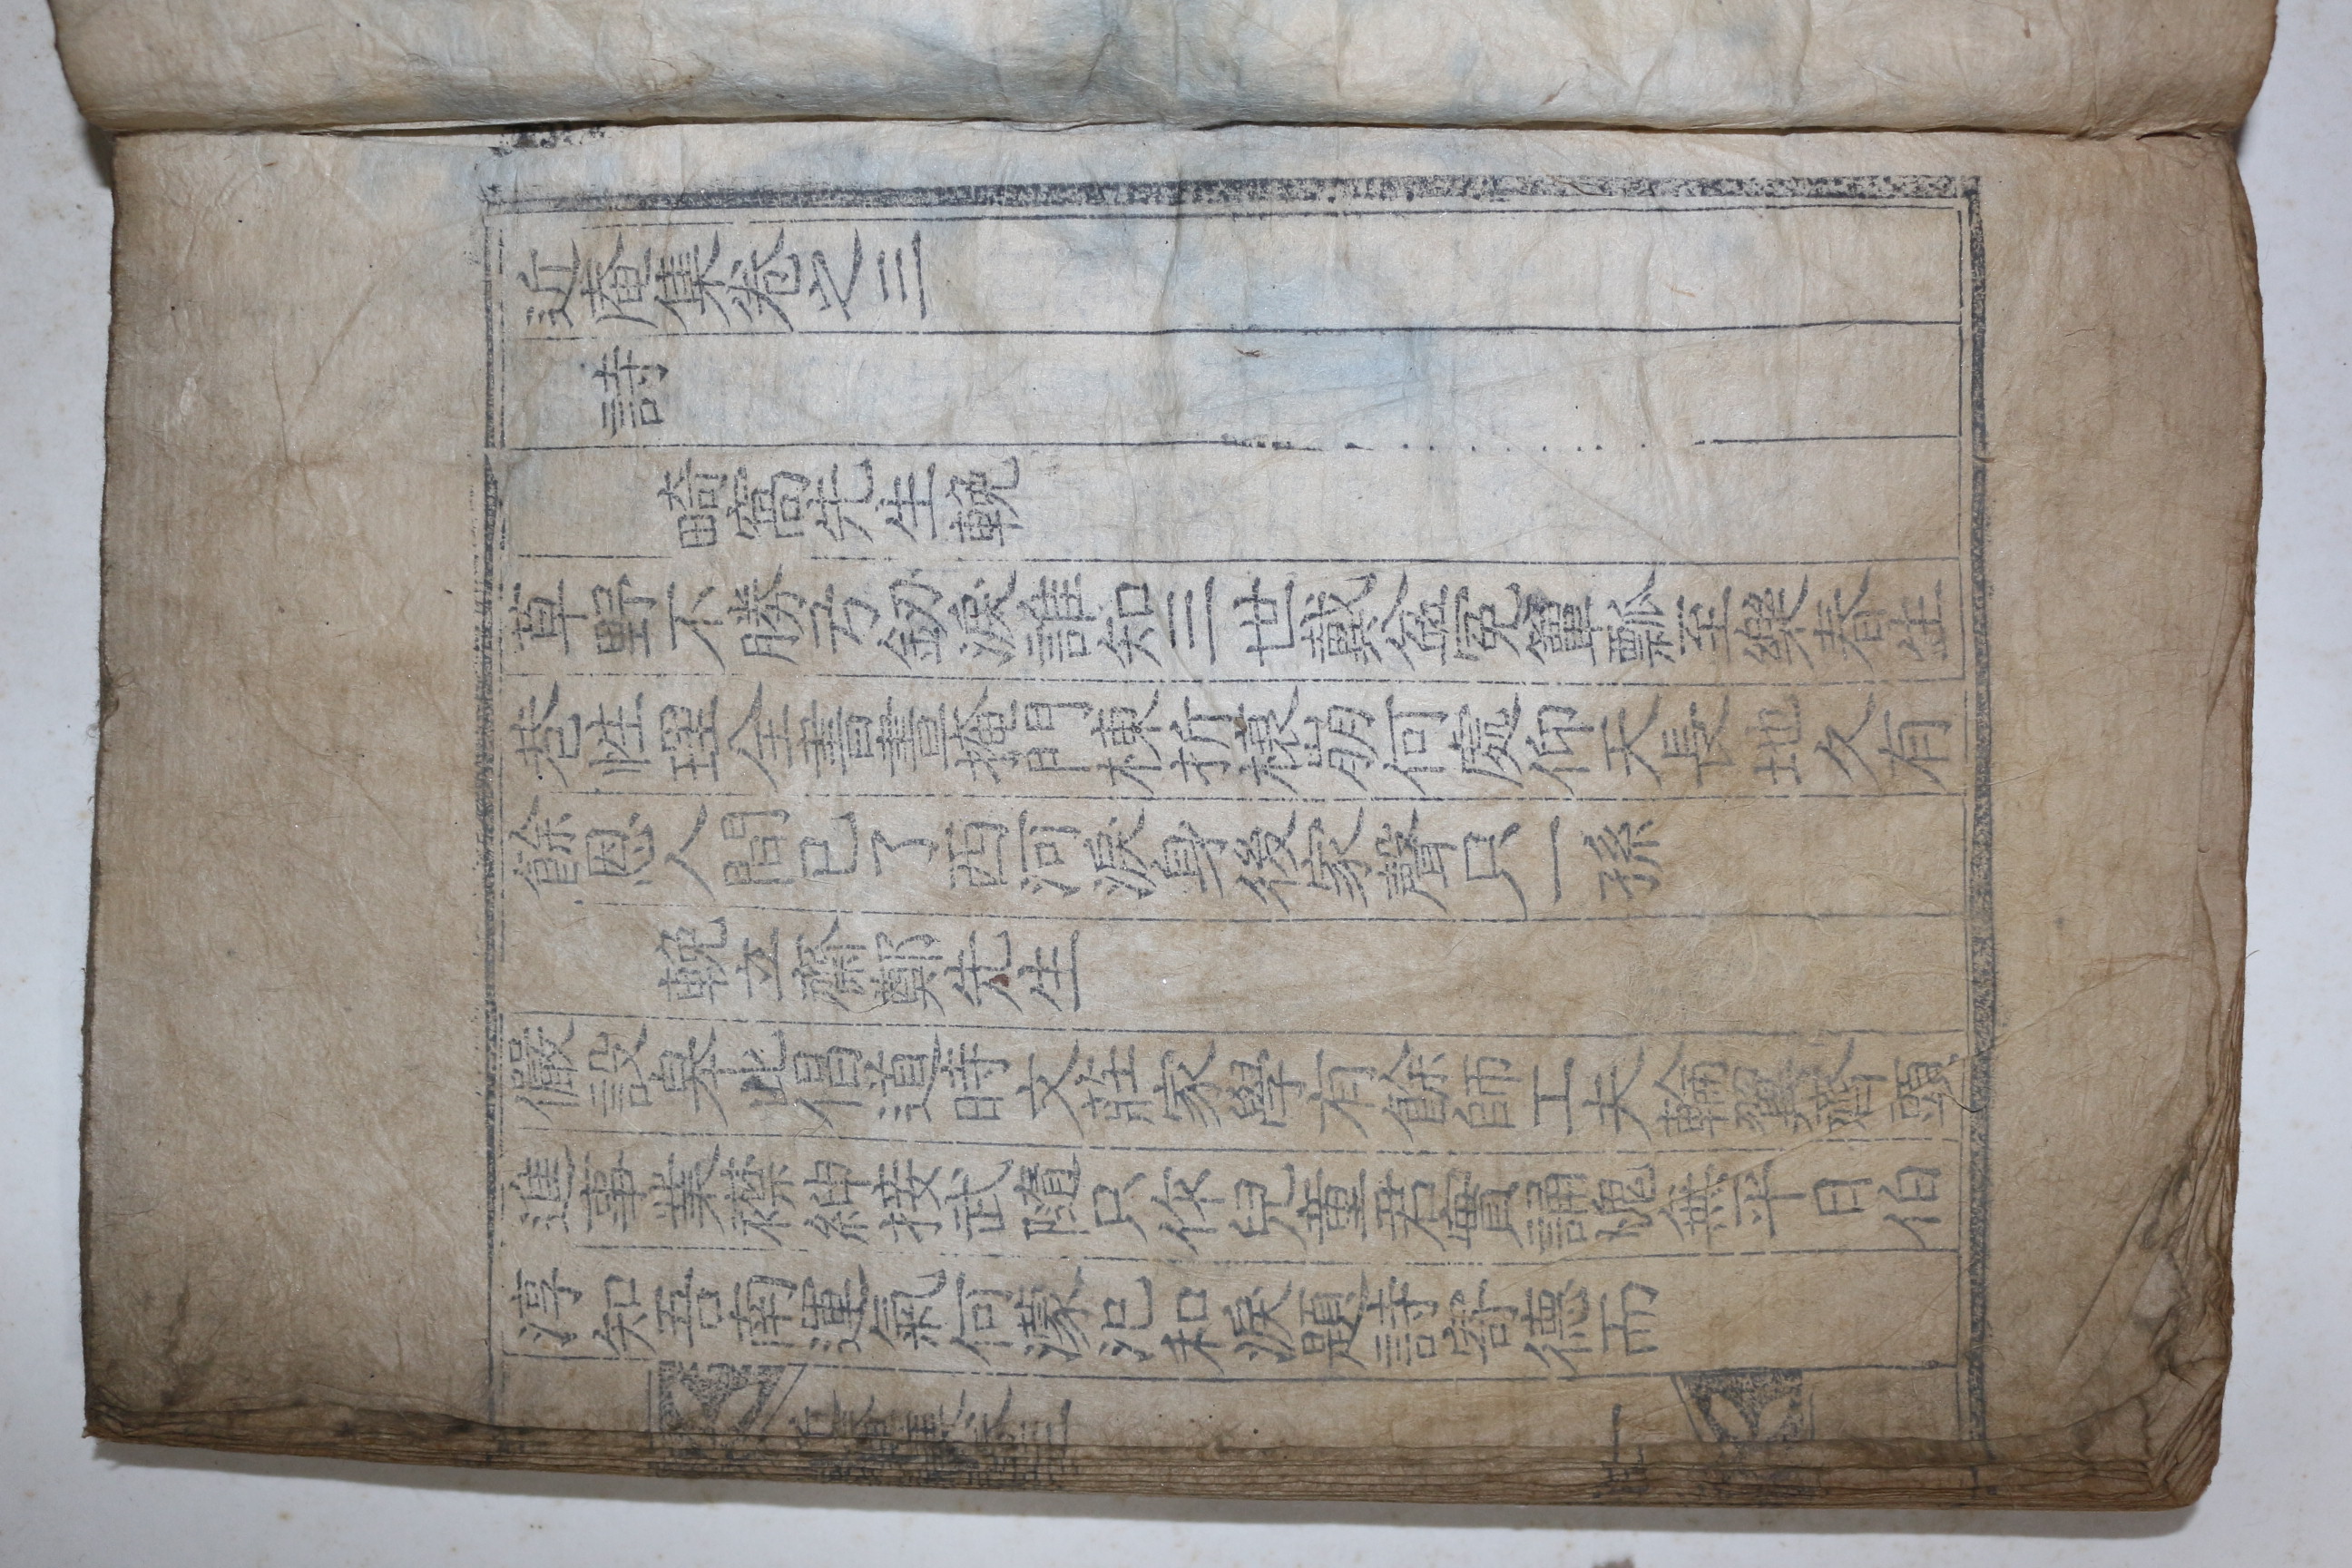 近庵集卷之三
詩
畸窩先生輓
草野不勝弓釰淚誰知三世戴盆寃簞瓢至樂春生
巷性理全書晝掩門棟折榱崩何處仰天長地久有
餘恩人間已了西河淚身後家聲只一孫
輓立齋鄭先生
儼設皋比倡道時文莊家學有餘師工夫輪翼齊頭
進事業襟紳接武隨只作兒童君實誦愧無平日伯
淳知吾南運氣何濛汜和淚題詩寄德而
近庵集卷三
一